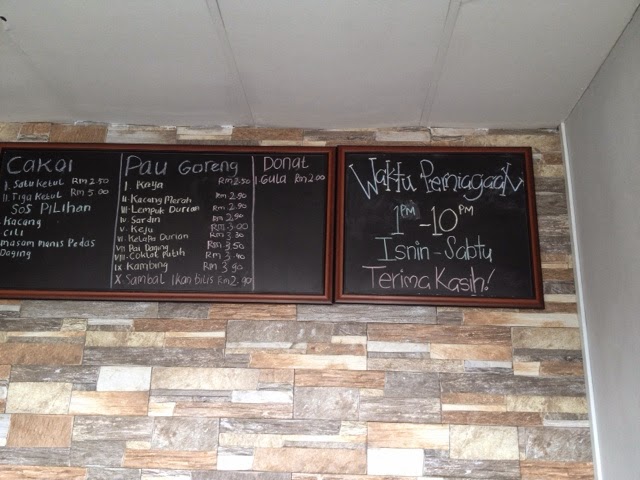 Cakoi
I. Satu ketul RM 2.50
II. Tiga ketul RM 5.00
Sos Pilihan
Kacang
Cili
masam manis Pedas
Daging
Pau Goreng
I. Kaya RM 2.50
II. Kacang Merah RM 2.90
III. Lempuk Durian RM 2.90
IV. Sardin RM 2.90
V. Keju RM 3.00
VI. Kelapa Durian RM 3.30
VII. Pai Daging RM 3.50
VIII. Coklat Putih RM 3.40
IX. Kambing RM 3.90
X. Sambal Ikan bilis RM 2.90
Donat
I. Gula RM 2.00
Waktu Perniagaan
1PM -10PM
Isnin - Sabtu
Terima Kasih!